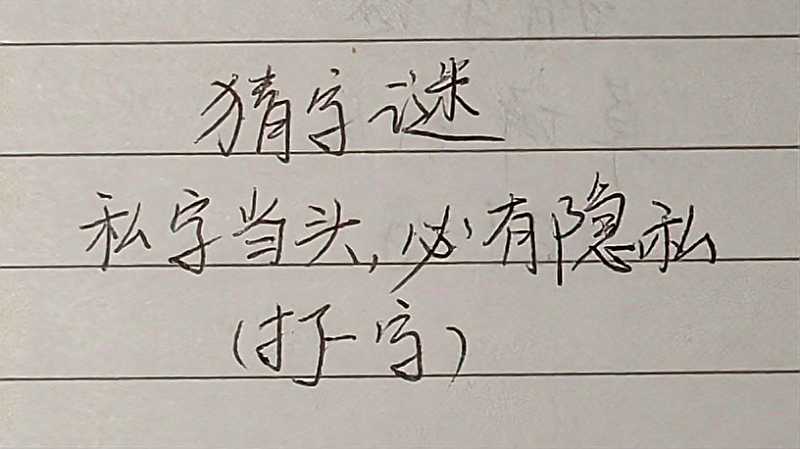 猜字谜
私字当头,必有隐私
(打一字)